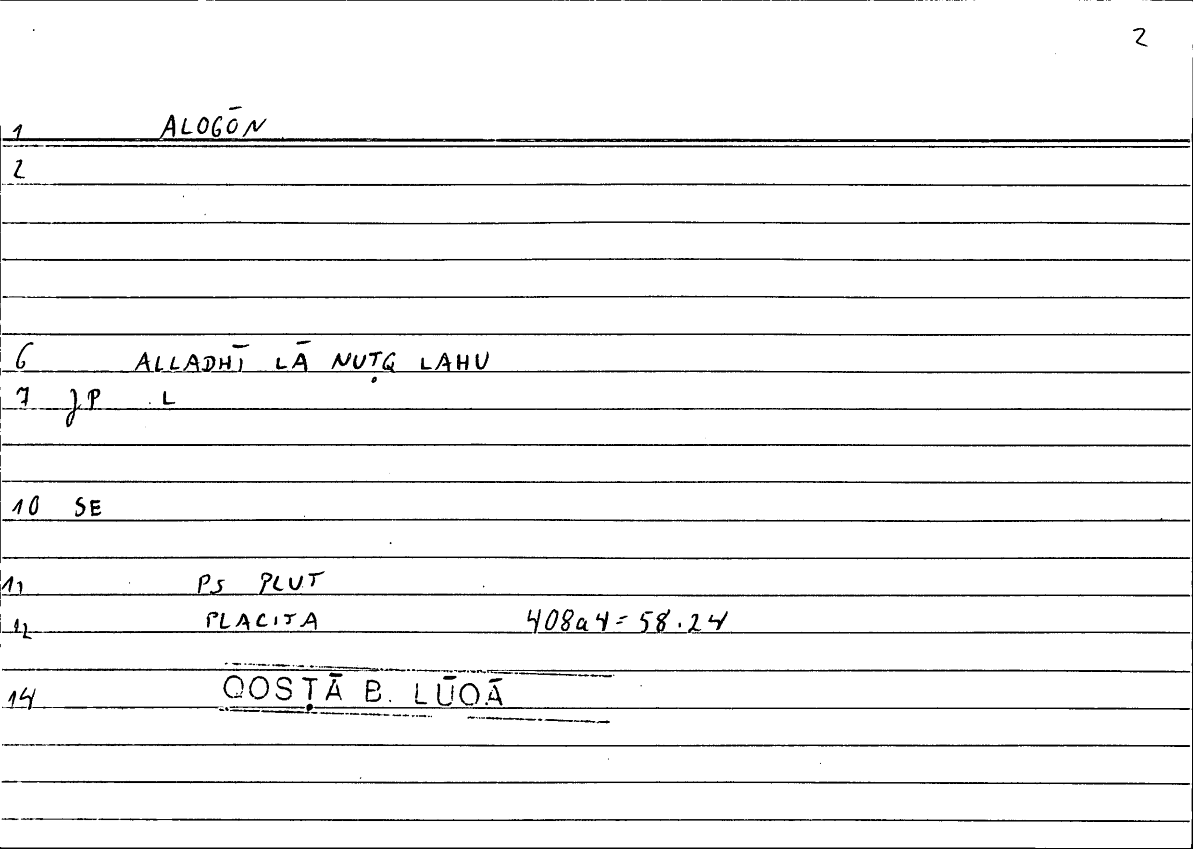 2
1 ALOGŌN
2
6 ALLADHĪ LĀ NUṬQ LAHU
7 JP L
10 SE
11 PS PLUT
12 PLACITA 408a4=58.24
14 QOSṬĀ B. LŪQĀ